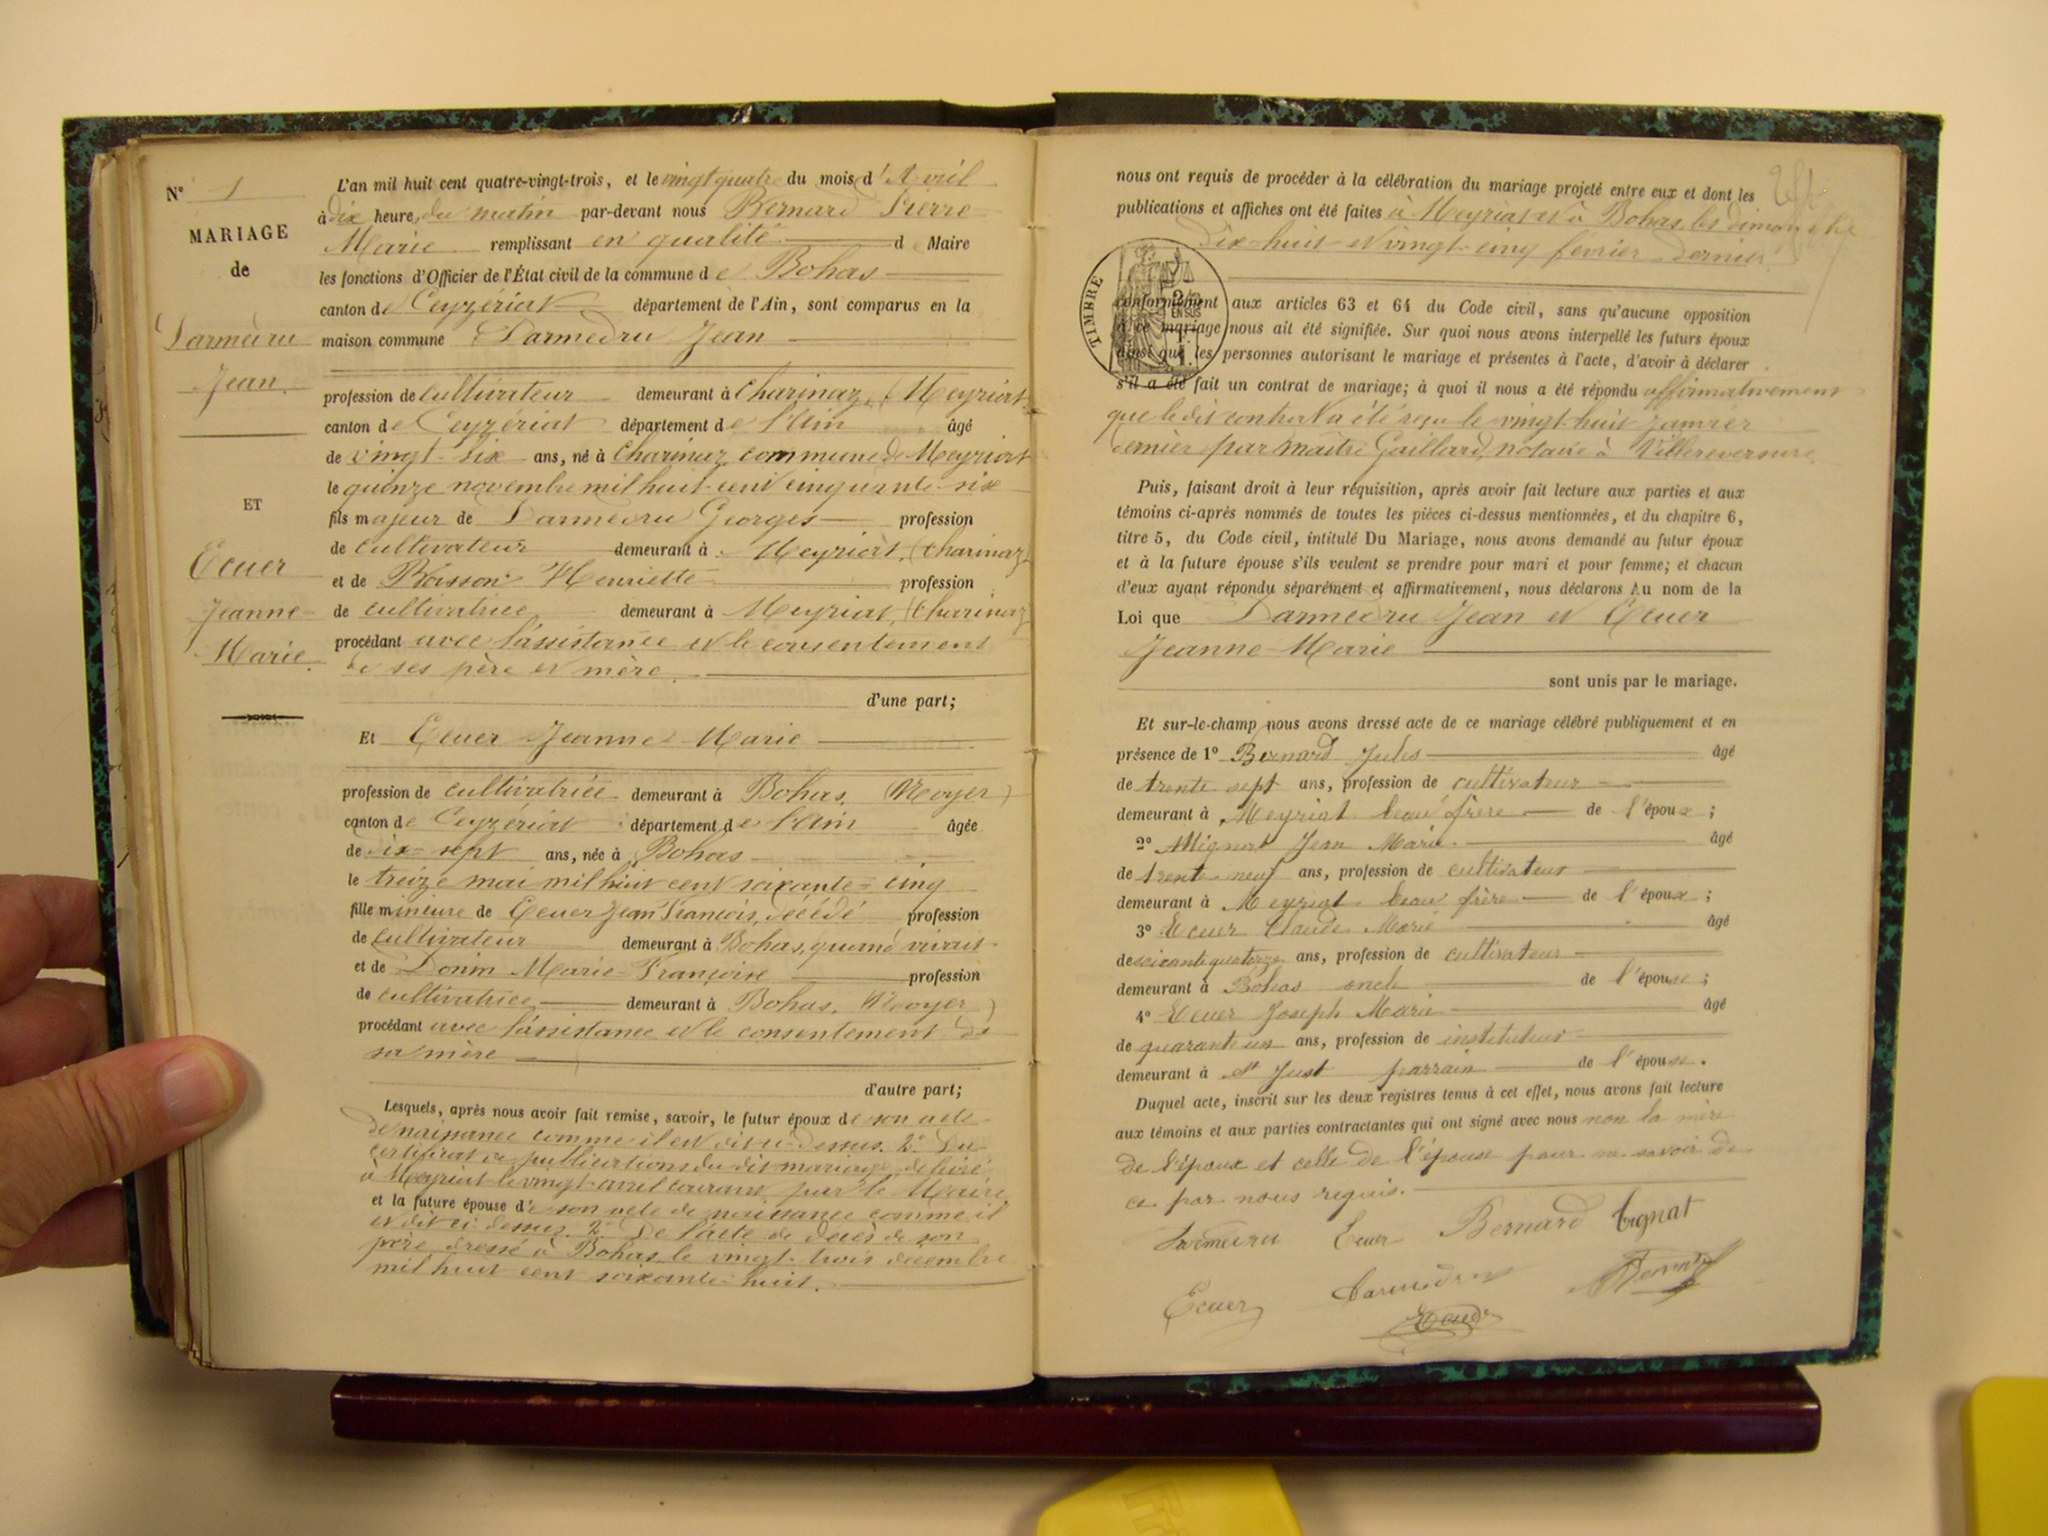 N° 1
MARIAGE
de
Darmedru
Jean.
ET
Ecuer
Jeanne-
Marie.
L'an mil huit cent quatre-vingt-trois, et le vingt quatre du mois d'Avril
à dix heure, du matin par-devant nous Bernard Pierre
Marie remplissant en qualité d Maire
les fonctions d'Officier de l'État civil de la commune de Bohas
canton de Ceyzériat département de l'Ain, sont comparus en la
maison commune Darmedru Jean
profession de cultivateur demeurant à Charinaz, (Meyriat
canton de Ceyzériat département de l'Ain âgé
de vingt-six ans, né à Charinaz commune de Meyriat
le quinze novembre mil huit cent cinquante-six
fils majeur de Darmedru Georges profession
de cultivateur demeurant à Meyriat, (Charinaz
et de Boisson Henriette profession
de cultivatrice demeurant à Meyriat, (Charinaz
procédant avec l'assistance et le consentement
de ses père et mère.
d'une part;
Et Ecuer Jeanne-Marie
profession de cultivatrice demeurant à Bohas. (Noyer)
canton de Ceyzériat département de l'Ain âgée
de dix-sept ans, née à Bohas
le treize mai mil huit cent soixante-cinq
fille mineure de Ecuer Jean François, décédé profession
de cultivateur demeurant à Bohas, quand vivait
et de Donin Marie-Françoise profession
de cultivatrice demeurant à Bohas. (Noyer)
procédant avec l'assistance et le consentement de
sa mère
d'autre part;
Lesquels, après nous avoir fait remise, savoir, le futur époux de son acte
de naissance comme il est dit ci-dessus. 2° Du
certificat de publications du dit mariage délivré
à Meyriat le vingt avril courant par le Maire
et la future épouse de son acte de naissance comme il
est dit ci-dessus. 2° De l'acte de décès de son
père dressé à Bohas le vingt-trois décembre
mil huit cent soixante-huit.
nous ont requis de procéder à la célébration du mariage projeté entre eux et dont les
publications et affiches ont été faites à Meyriat et à Bohas les dimanche
dix-huit et vingt-cinq février dernier
TIMBRE
2/10
EN SUS
conformément aux articles 63 et 64 du Code civil, sans qu'aucune opposition
à ce mariage nous ait été signifiée. Sur quoi nous avons interpellé les futurs époux
ainsi que les personnes autorisant le mariage et présentes à l'acte, d'avoir à déclarer
s'il a été fait un contrat de mariage; à quoi il nous a été répondu affirmativement
que ledit contrat a été reçu le vingt-huit janvier
dernier par maître Gaillard, notaire à Villereversure.
Puis, faisant droit à leur réquisition, après avoir fait lecture aux parties et aux
témoins ci-après nommés de toutes les pièces ci-dessus mentionnées, et du chapitre 6,
titre 5, du Code civil, intitulé Du Mariage, nous avons demandé au futur époux
et à la future épouse s'ils veulent se prendre pour mari et pour femme; et chacun
d'eux ayant répondu séparément et affirmativement, nous déclarons Au nom de la
Loi que Darmedru Jean et Ecuer
Jeanne-Marie
sont unis par le mariage.
Et sur-le-champ nous avons dressé acte de ce mariage célébré publiquement et en
présence de 1° Bernard Jules âgé
de trente sept ans, profession de cultivateur
demeurant à Meyriat beau frère de l'époux;
2° Mignot Jean Marie âgé
de trente-neuf ans, profession de cultivateur
demeurant à Meyriat beau frère de l'époux;
3° Ecuer Claude Marie âgé
de soixante quatorze ans, profession de cultivateur
demeurant à Bohas oncle de l'épouse;
4° Ecuer Joseph Marie âgé
de quarante un ans, profession de instituteur
demeurant à St Just parrain de l'épouse.
Duquel acte, inscrit sur les deux registres tenus à cet effet, nous avons fait lecture
aux témoins et aux parties contractantes qui ont signé avec nous non la mère
de l'époux et celle de l'épouse pour ne savoir de
ce par nous requis.
Darmedru Ecuer Bernard Mignat
Ecuer Darmedru Bernard
Ecuer